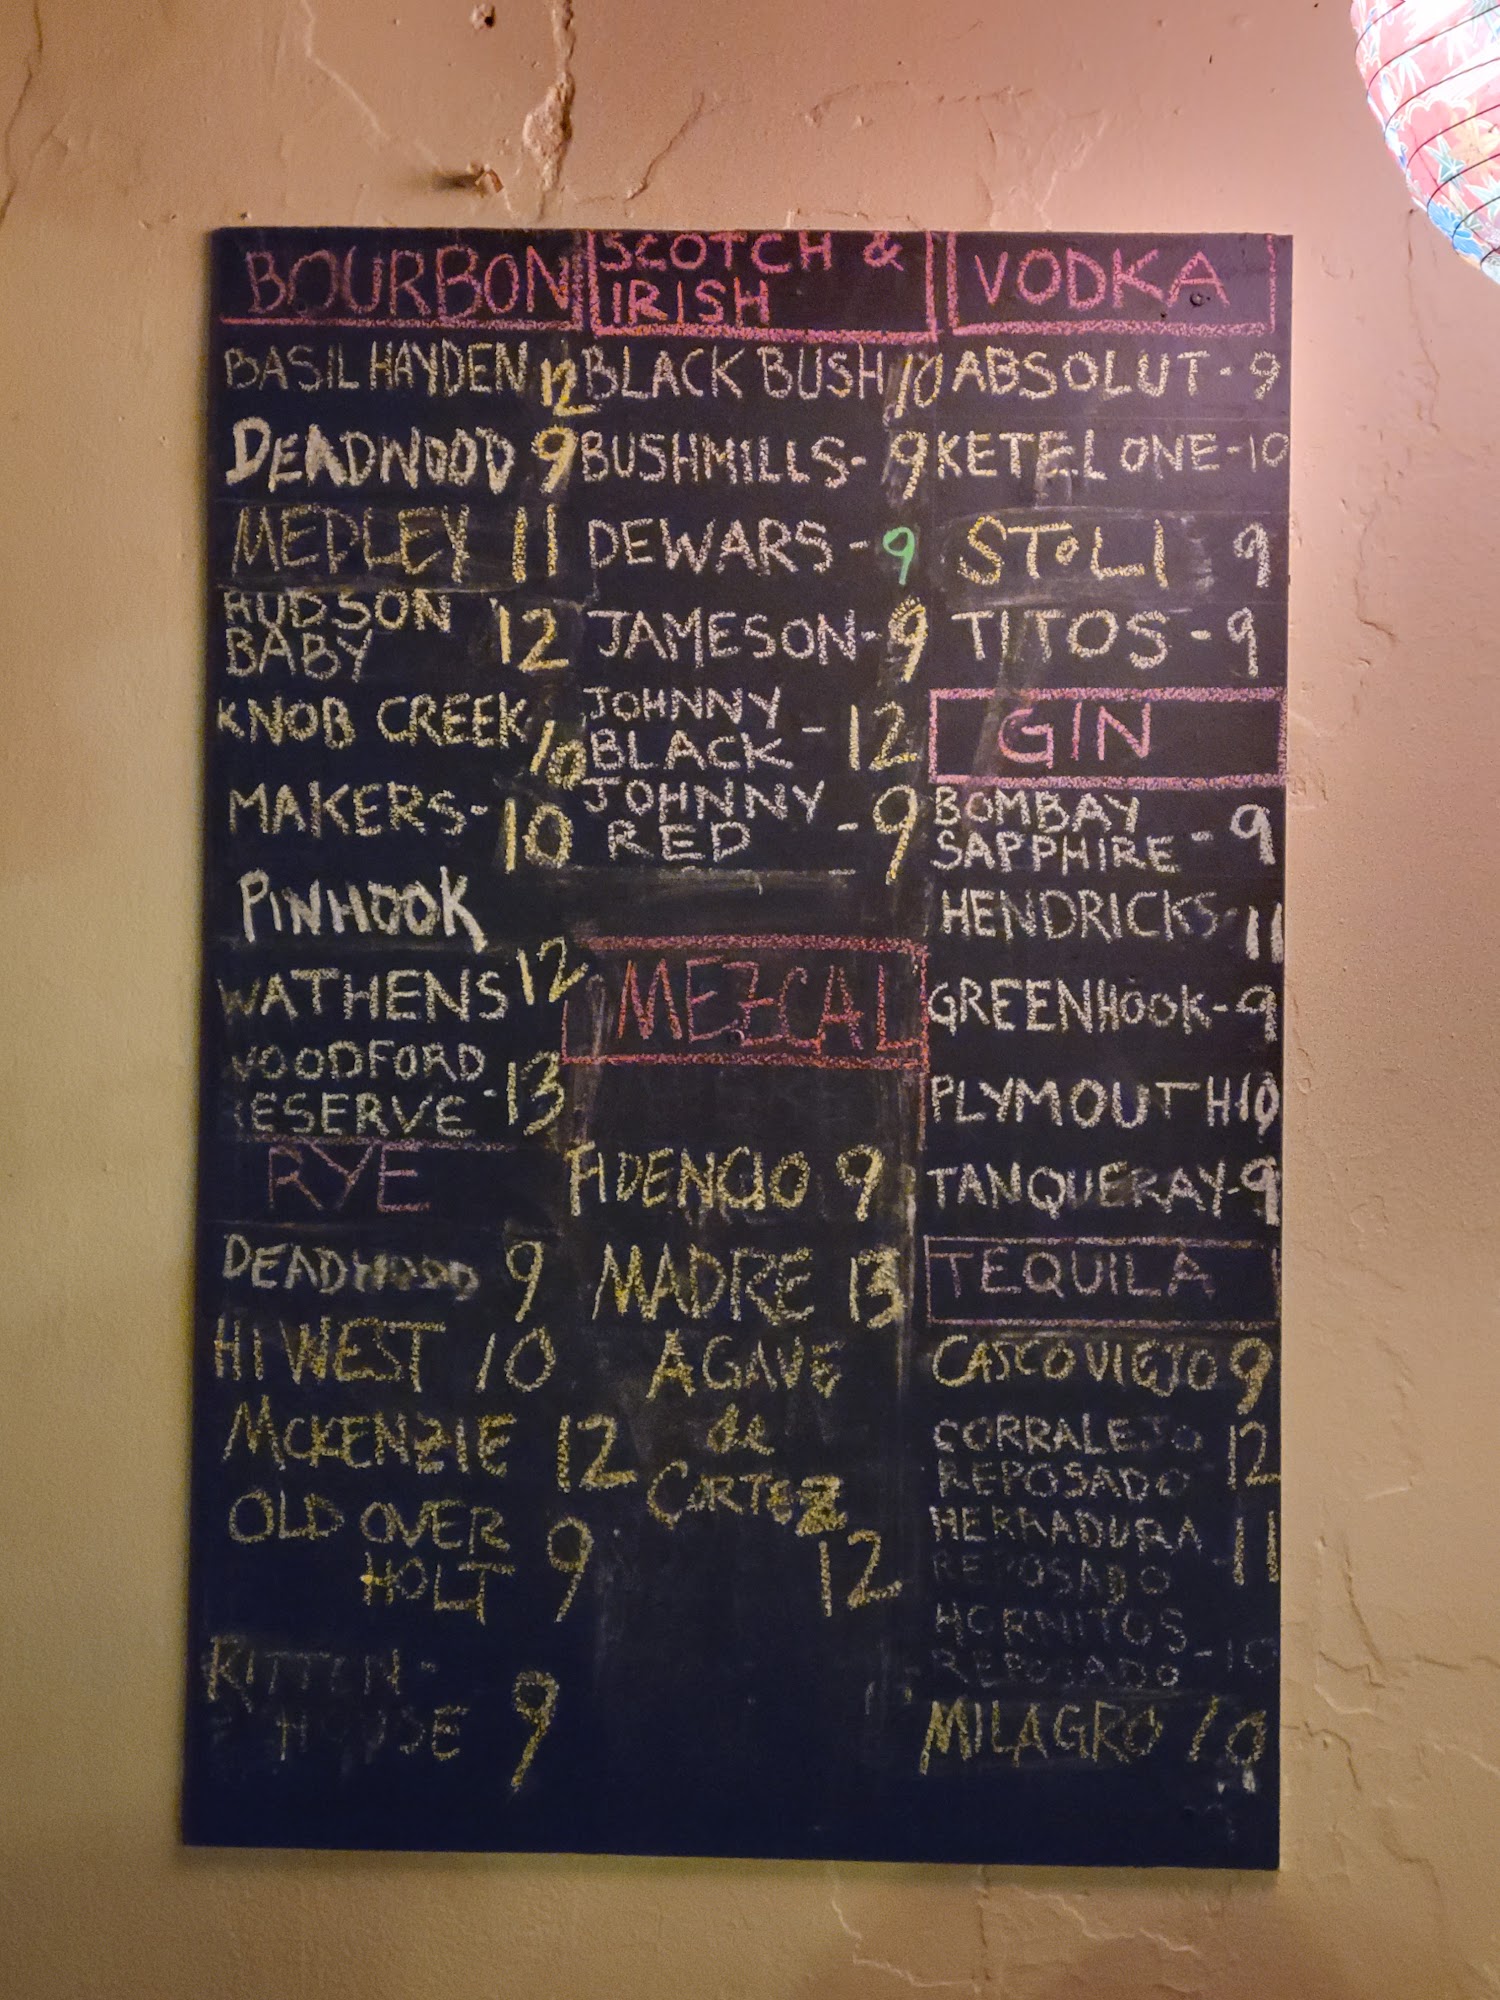 BOURBON
BASIL HAYDEN 12
DEADWOOD 9
MEDLEY 11
HUDSON
BABY 12
KNOB CREEK 10
MAKERS- 10
PINHOOK
WATHENS 12
WOODFORD
RESERVE -13
RYE
DEADWOOD 9
HI WEST 10
MCKENZIE 12
OLD OVER
HOLT 9
RITTEN-
HOUSE 9
SCOTCH &
IRISH
BLACK BUSH 10
BUSHMILLS- 9
DEWARS - 9
JAMESON- 9
JOHNNY
BLACK - 12
JOHNNY
RED - 9
MEZCAL
FIDENCIO 9
MADRE 13
AGAVE
de
CORTEZ
12
VODKA
ABSOLUT - 9
KETEL ONE -10
STOLI 9
TITOS - 9
GIN
BOMBAY
SAPPHIRE - 9
HENDRICKS 11
GREENHOOK- 9
PLYMOUTH 10
TANQUERAY- 9
TEQUILA
CASCO VIEJO 9
CORRALEJO
REPOSADO 12
HERRADURA
REPOSADO -11
HORNITOS
REPOSADO -10
MILAGRO 10